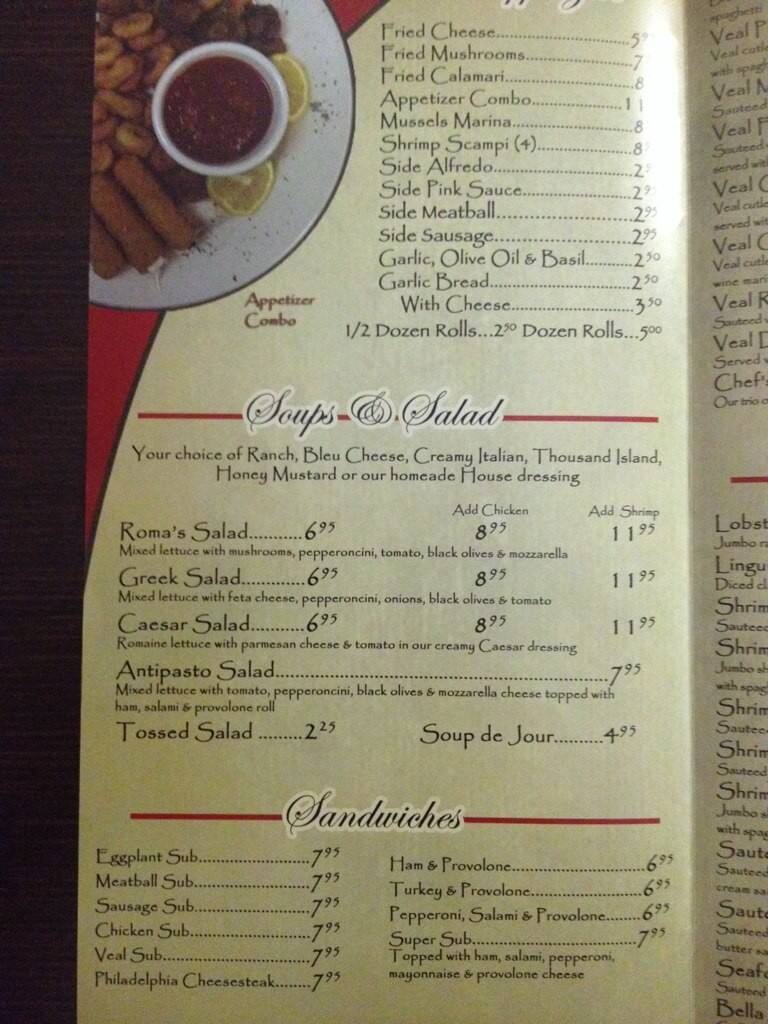 Fried Cheese 5
Fried Mushrooms 7
Fried Calamari 8
Appetizer Combo 11
Mussels Marina 8
Shrimp Scampi (4) 8
Side Alfredo 2
Side Pink Sauce 2⁹⁵
Side Meatball 2⁹⁵
Side Sausage 2⁹⁵
Garlic, Olive Oil & Basil 2⁵⁰
Garlic Bread 2⁵⁰
With Cheese 3⁵⁰
1/2 Dozen Rolls...2⁵⁰ Dozen Rolls...5⁰⁰
Appetizer
Combo
Soups & Salad
Your choice of Ranch, Bleu Cheese, Creamy Italian, Thousand Island,
Honey Mustard or our homeade House dressing
Add Chicken Add Shrimp
Roma's Salad 6⁹⁵ 8⁹⁵ 11⁹⁵
Mixed lettuce with mushrooms, pepperoncini, tomato, black olives & mozzarella
Greek Salad 6⁹⁵ 8⁹⁵ 11⁹⁵
Mixed lettuce with feta cheese, pepperoncini, onions, black olives & tomato
Caesar Salad 6⁹⁵ 8⁹⁵ 11⁹⁵
Romaine lettuce with parmesan cheese & tomato in our creamy Caesar dressing
Antipasto Salad 7⁹⁵
Mixed lettuce with tomato, pepperoncini, black olives & mozzarella cheese topped with
ham, salami & provolone roll
Tossed Salad 2²⁵ Soup de Jour 4⁹⁵
Sandwiches
Eggplant Sub 7⁹⁵
Meatball Sub 7⁹⁵
Sausage Sub 7⁹⁵
Chicken Sub 7⁹⁵
Veal Sub 7⁹⁵
Philadelphia Cheesesteak 7⁹⁵
Ham & Provolone 6⁹⁵
Turkey & Provolone 6⁹⁵
Pepperoni, Salami & Provolone 6⁹⁵
Super Sub 7⁹⁵
Topped with ham, salami, pepperoni,
mayonnaise & provolone cheese
spaghetti
Veal
Veal
with
Veal
Sauteed
Veal
Sauteed
served
Veal
Veal
served
Veal
Veal
wine
Veal
Sauteed
Veal
Served
Chef's
Our trio
Jumbo
Diced
Sauteed
Jumbo
with
Jumbo
with
Sauteed
cream
butter
Bella